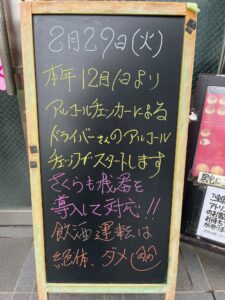 8月29日(火)
本年12月1日より
アルコールチェッカーによる
ドライバーさんのアルコール
チェックがスタートします
さくらも機器を
導入して対応!!
飲酒運転は
絶体、ダメ